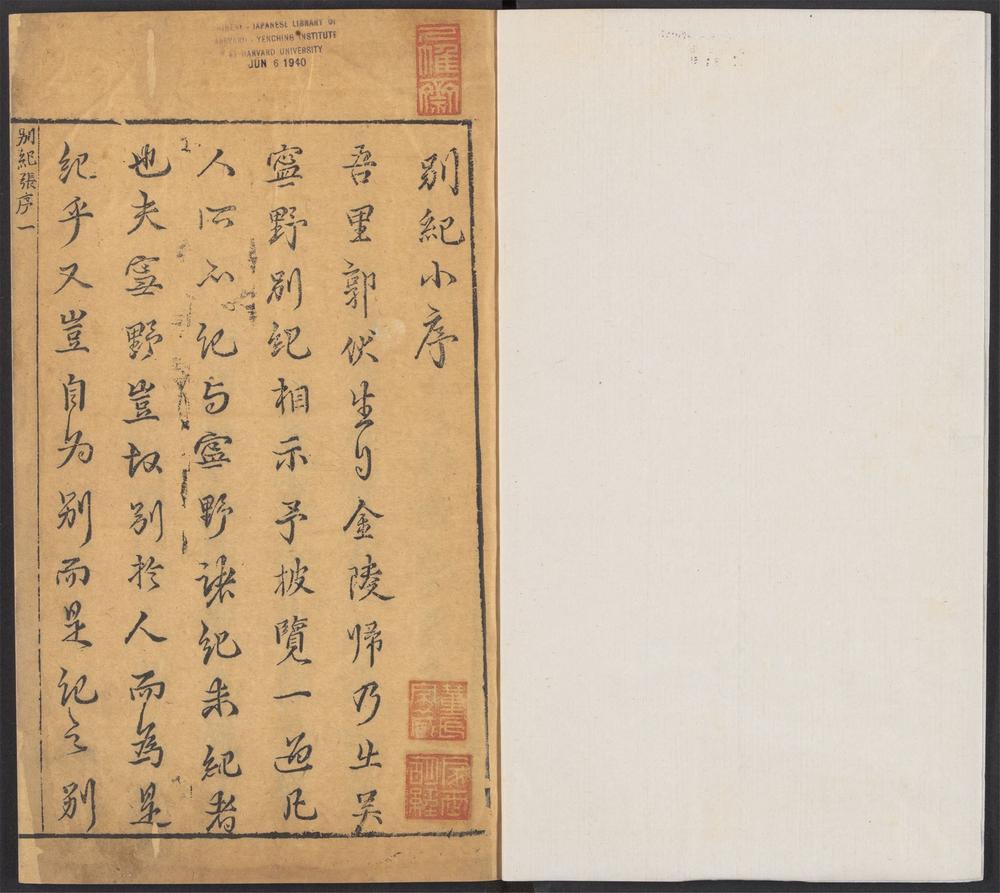 CHINESE - JAPANESE LIBRARY OF
HARVARD - YENCHING INSTITUTE
AT HARVARD UNIVERSITY
JUN 6 1940
別紀小序
吾里郭伏生自金陵歸乃出吳
寧野別紀相示予披覽一過凡
人所不記与寧野諸紀未紀者
也夫寧野豈故別於人而為是
紀乎又豈自为別而是記之別
別紀張序 一